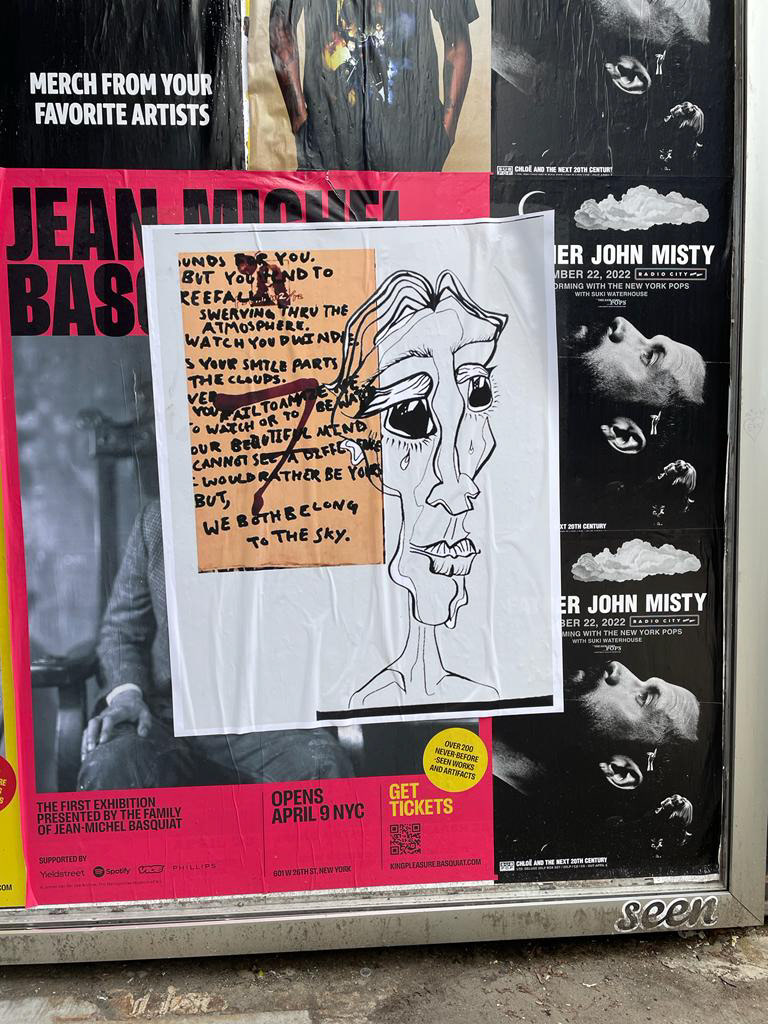 MERCH FROM YOUR
FAVORITE ARTISTS
CHLOË AND THE NEXT 20TH CENTURY
JEAN-MICHEL
BAS
UNDS FOR YOU.
BUT YOU TEND TO
REEFALL
SWERVING THRU THE
ATMOSPHERE.
WATCH YOU DWINDLE
S YOUR SMILE PARTS
THE CLOUDS.
VER
YOU FAIL TO AMAZE ME
O WATCH OR TO BE WATC
OUR BEAUTIFUL MIND
CANNOT SEE A DIFFERE
WOULD RATHER BE YOU
BUT,
WE BOTH BELONG
TO THE SKY.
ER JOHN MISTY
MBER 22, 2022 RADIO CITY
ORMING WITH THE NEW YORK POPS
WITH SUKI WATERHOUSE
POPS
XT 20TH CENTURY
ER JOHN MISTY
BER 22, 2022 RADIO CITY
MING WITH THE NEW YORK POPS
WITH SUKI WATERHOUSE
POPS
CHLOË AND THE NEXT 20TH CENTURY
OVER 200
NEVER-BEFORE
-SEEN WORKS
AND ARTIFACTS
THE FIRST EXHIBITION
PRESENTED BY THE FAMILY
OF JEAN-MICHEL BASQUIAT
OPENS
APRIL 9 NYC
GET
TICKETS
SUPPORTED BY
Yieldstreet Spotify VICE PHILLIPS
601 W 26TH ST. NEW YORK
KINGPLEASURE.BASQUIAT.COM
.COM
seen